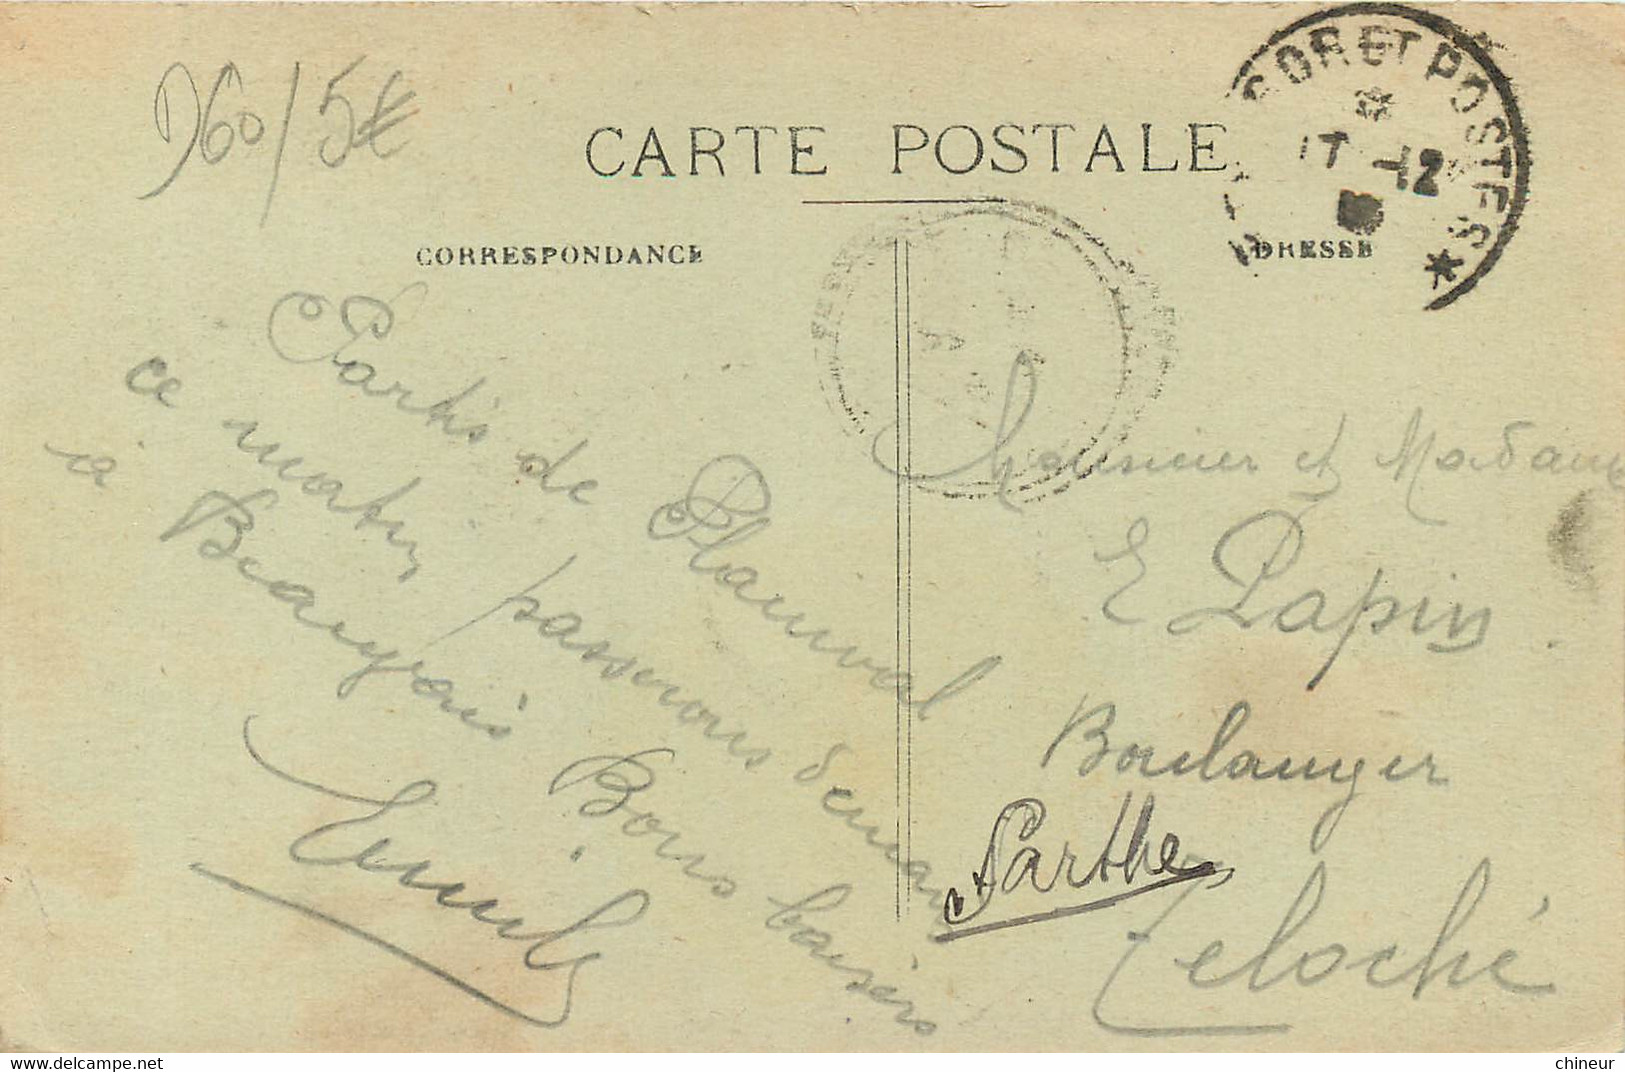 D60/5€
CARTE POSTALE
CORRESPONDANCE
TRESOR ET POSTES *
17 -12
Partis de Plainval
ce matin, passerons demain
à Beauvais Bons baisers
Emile
ADRESSE
Monsieur et Madame
E Papin
Boulanger
Teloché
Sarthe
chineur